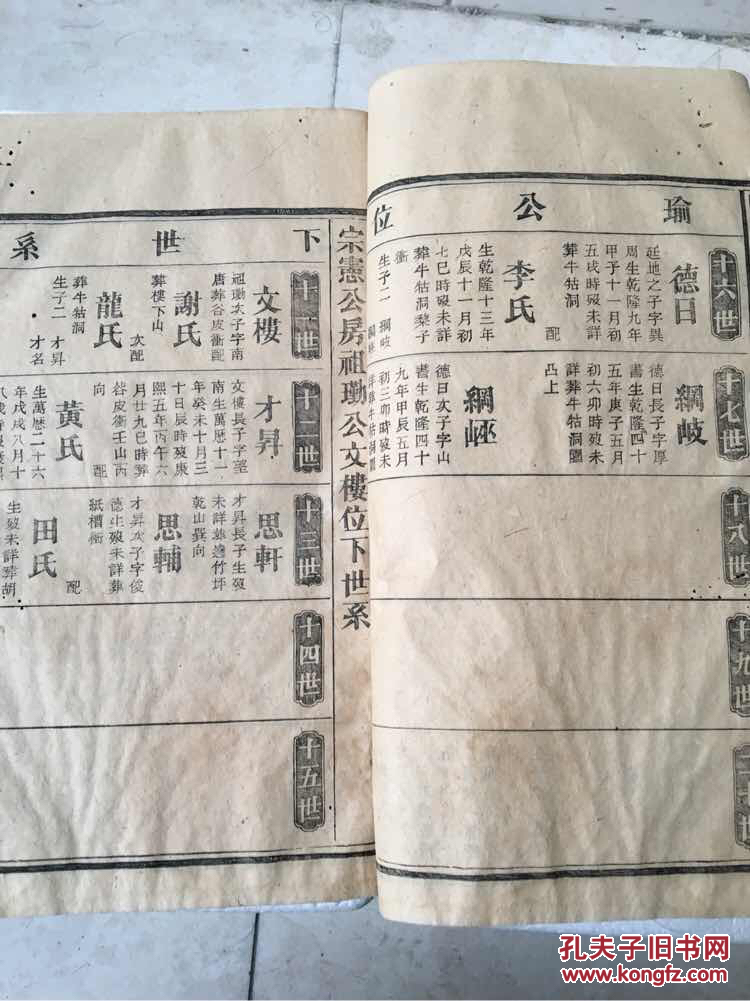 瑜公位
十六世
德日
延地之子字異
周生乾隆九年
甲子十一月初
五戌時歿未詳
葬牛牯洞
配
李氏
生乾隆十三年
戊辰十一月初
七巳時歿未詳
葬牛牯洞梨子
衝
生子二 綱岐
十七世
綱岐
德日長子字厚
書生乾隆四十
五年庚子五月
初六卯時歿未
詳葬牛牯洞
凸上
德日次子字山
書生乾隆四十
九年甲辰五月
初三卯時歿未
詳葬牛牯洞
十八世
十九世
宗憲公房祖勱公文樓位下世系
下世系
十一世
文樓
祖勱次子字南
唐葬谷皮衝配
謝氏
葬樓下山
次配
龍氏
葬牛牯洞
生子二 才昇
才名
十二世
才昇
文樓長子字望
南生萬曆十一
年癸未十月三
十日辰時歿康
熙五年丙午六
月廿九巳時葬
谷皮衝壬山丙
向
配
黃氏
生萬曆二十六
年戊戌八月十
十三世
思軒
才昇長子生歿
未詳葬
竹坪
乾山巽向
思輔
才昇次子字俊
德生歿未詳葬
紙槽衝
配
田氏
生歿未詳葬胡
十四世
十五世
孔夫子旧书网
www.kongfz.com